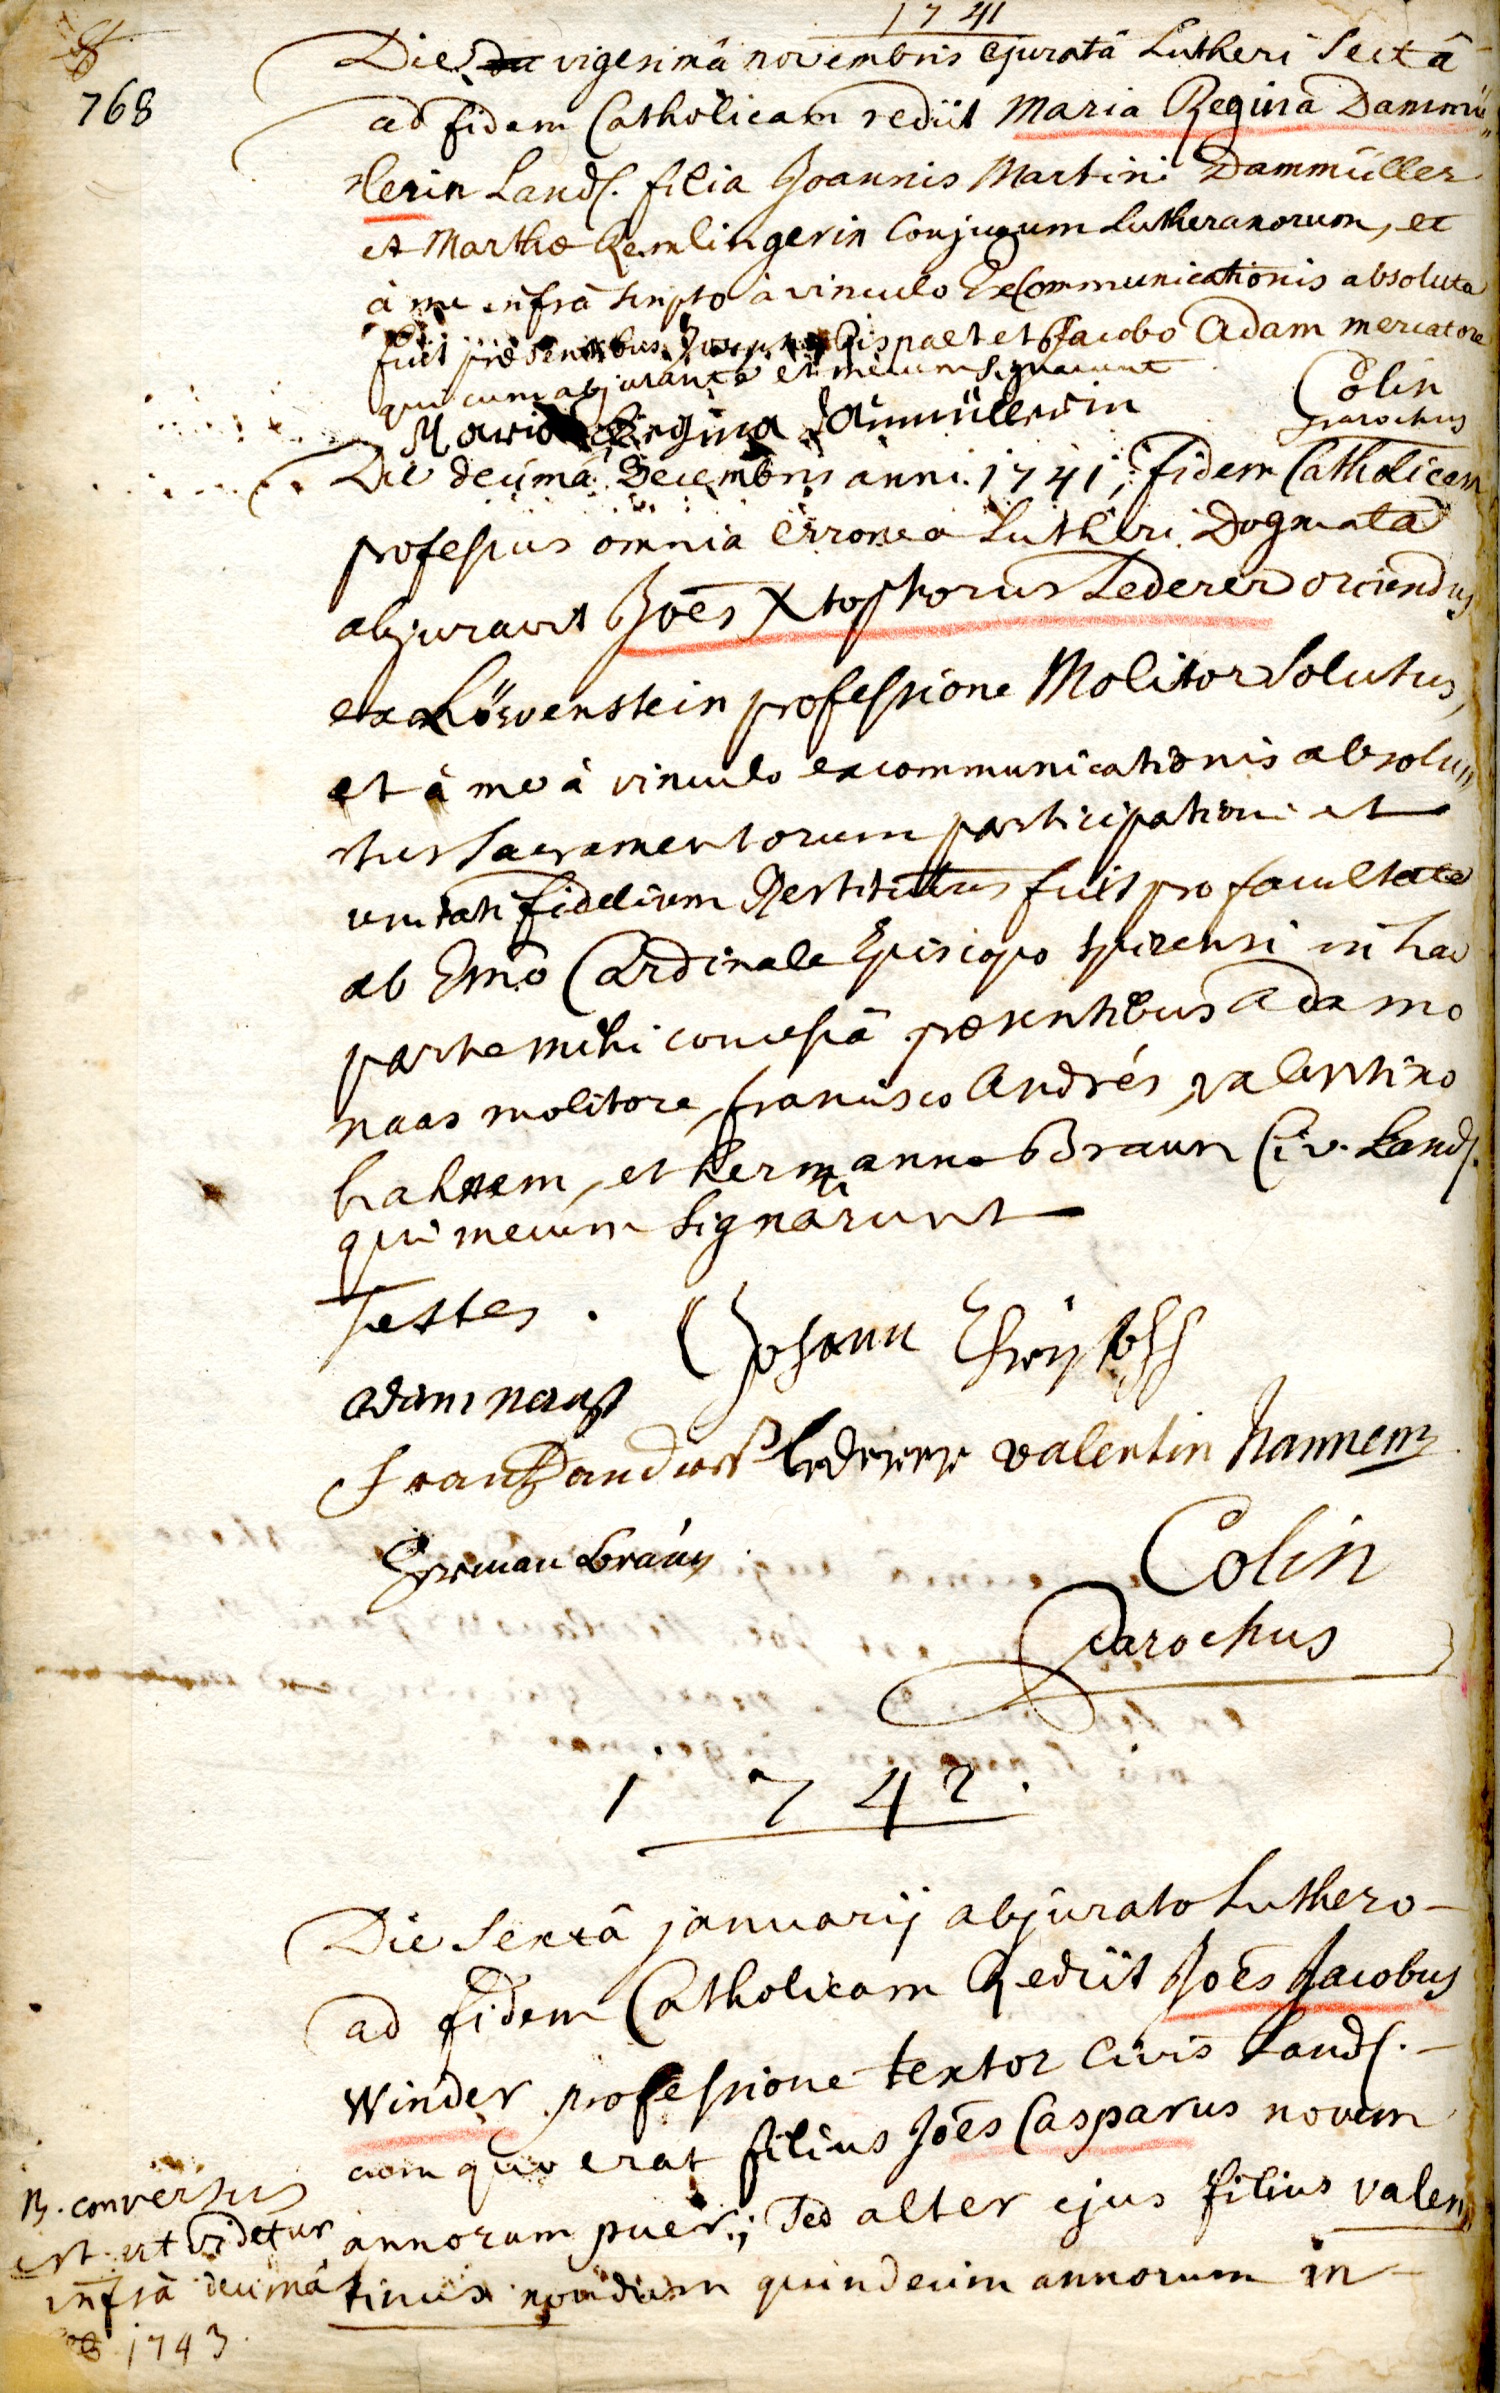 1741
768
Die vigesimâ novembris ejuratâ Lutheri Sectâ
ad fidem Catholicam rediit Maria Regina Dammü„
lerin Land. filia Joannis Martini Dammüller
et Marthæ Remlingerin Conjugum Lutheranorum, et
à me infrà scripto à vinculo Excommunicationis absoluta
fuit præsentibus et Jacobo Adam mercatore
qui cum abjurante et mecum signarunt
Colin
parochus
Maria Regina Dammüllerin
Die decimâ Decembris anni 1741, fidem Catholicam
professus omnia Erronea Lutheri Dogmata
abjuravit Joēs Xtophorus Lederer oriundus
ex Löwenstein professione Molitor Solutus,
et à me à vinculo excommunicationis absolu„
tus Sacramentorum participationi et
unitati fidelium Restitutus fuit pro facultate
ab Emō Cardinale Episcopo Spirensi in hac
parte mihi concessâ præsentibus Adamo
naas molitore, francisco Andrés, valentino
hahnem, et hermanno Braun Civ. Land.
qui mecum Signârunt
Testes .
Johann Christoff
adam nauß
Lederer valentin hannem
Herman Braun
Colin
Parochus
1742.
Die Sextâ januarij abjurato Luthero
ad fidem Catholicam Rediit Joēs Jacobus
Winder professione textor Civis Land.
cum quo erat filius Joēs Casparus novem
annorum puer; Sed alter ejus filius valen„
tinus nondum quindecim annorum in
B. conversus
est ut videtur
infrà decimâ
1743.